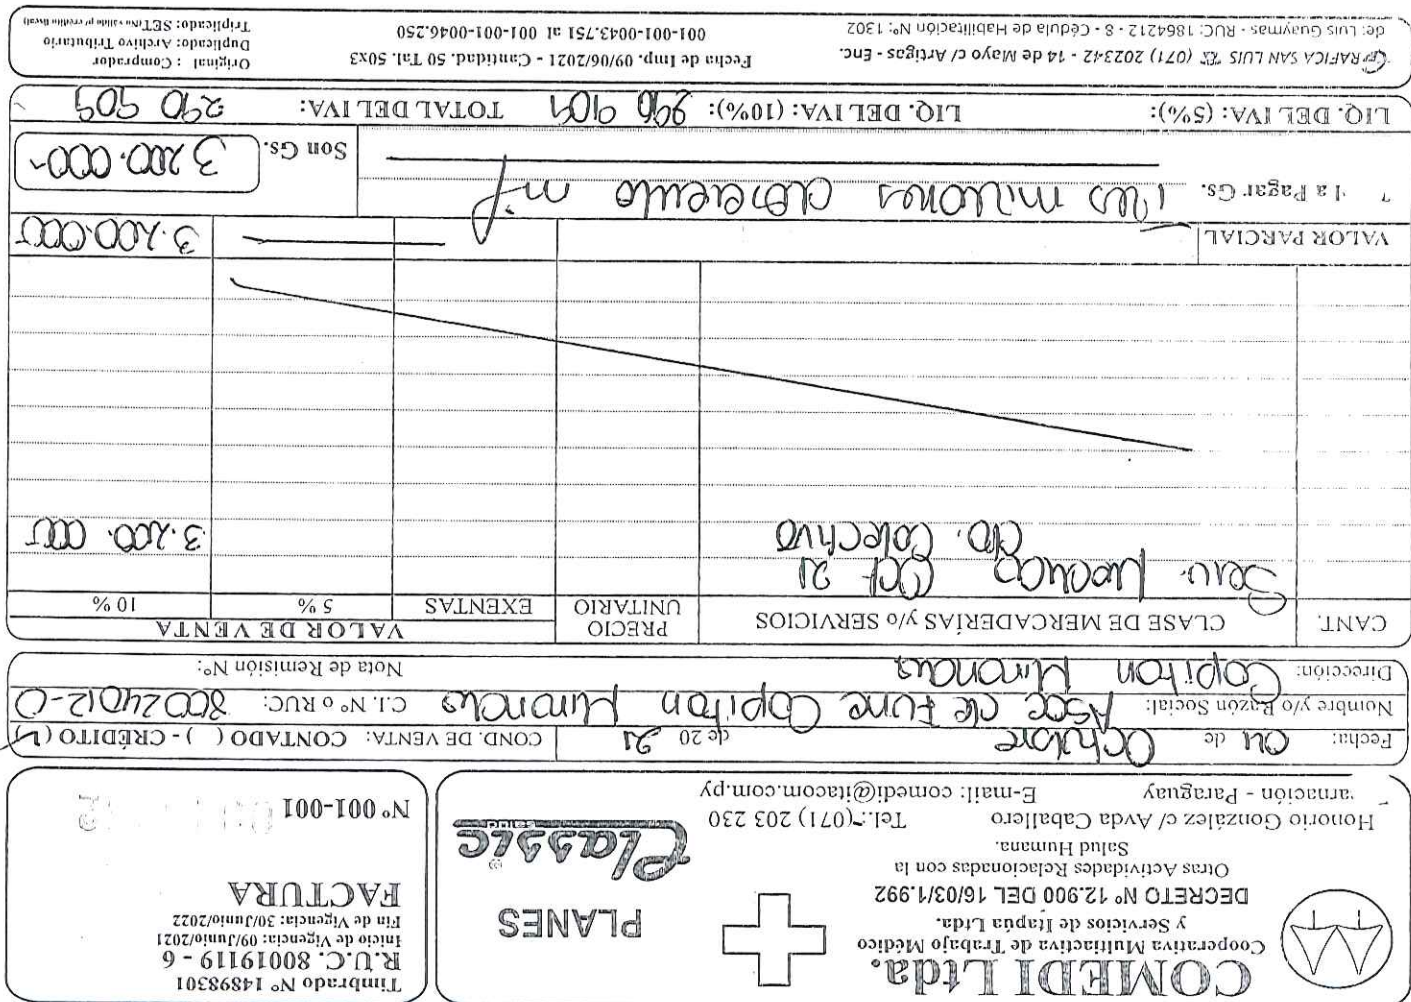 COMEDI Ltda.
Cooperativa Multiactiva de Trabajo Médico
y Servicios de Itapúa Ltda.
DECRETO Nº 12.900 DEL 16/03/1.992
Otras Actividades Relacionadas con la
Salud Humana.
Honorio González c/ Avda Caballero Tel.: (071) 203 230
arnación - Paraguay E-mail: comedi@itacom.com.py
PLANES
Classic
salud
Timbrado Nº 14898301
R.U.C. 80019119 - 6
Inicio de Vigencia: 09/Junio/2021
Fin de Vigencia: 30/Junio/2022
FACTURA
Nº 001-001
Fecha: 04 de Octubre de 2021 COND. DE VENTA: CONTADO ( ) - CRÉDITO (
Nombre y/o Razón Social: Asoc de Func Capitan Miranda C.I. Nº o RUC: 80024012-0
Dirección: Capitan Miranda Nota de Remisión Nº:
CANT. CLASE DE MERCADERÍAS y/o SERVICIOS PRECIO UNITARIO VALOR DE VENTA
EXENTAS 5 % 10 %
Serv. Medico Oct 21
Cto. Colectivo 3.200.000
VALOR PARCIAL 3.200.000
l a Pagar Gs. Tres millones doscientos m Son Gs. 3.200.000
LIQ. DEL IVA: (5%): LIQ. DEL IVA: (10%): 290 909 TOTAL DEL IVA: 290 909
GRAFICA SAN LUIS ☎ (071) 202342 - 14 de Mayo c/ Artigas - Enc.
de: Luis Guaymas - RUC: 1864212 - 8 - Cédula de Habilitación Nº: 1302
Fecha de Imp. 09/06/2021 - Cantidad. 50 Tal. 50x3
001-001-0043.751 al 001-001-0046.250
Original : Comprador
Duplicado: Archivo Tributario
Triplicado: SET (No válido p/ crédito fiscal)